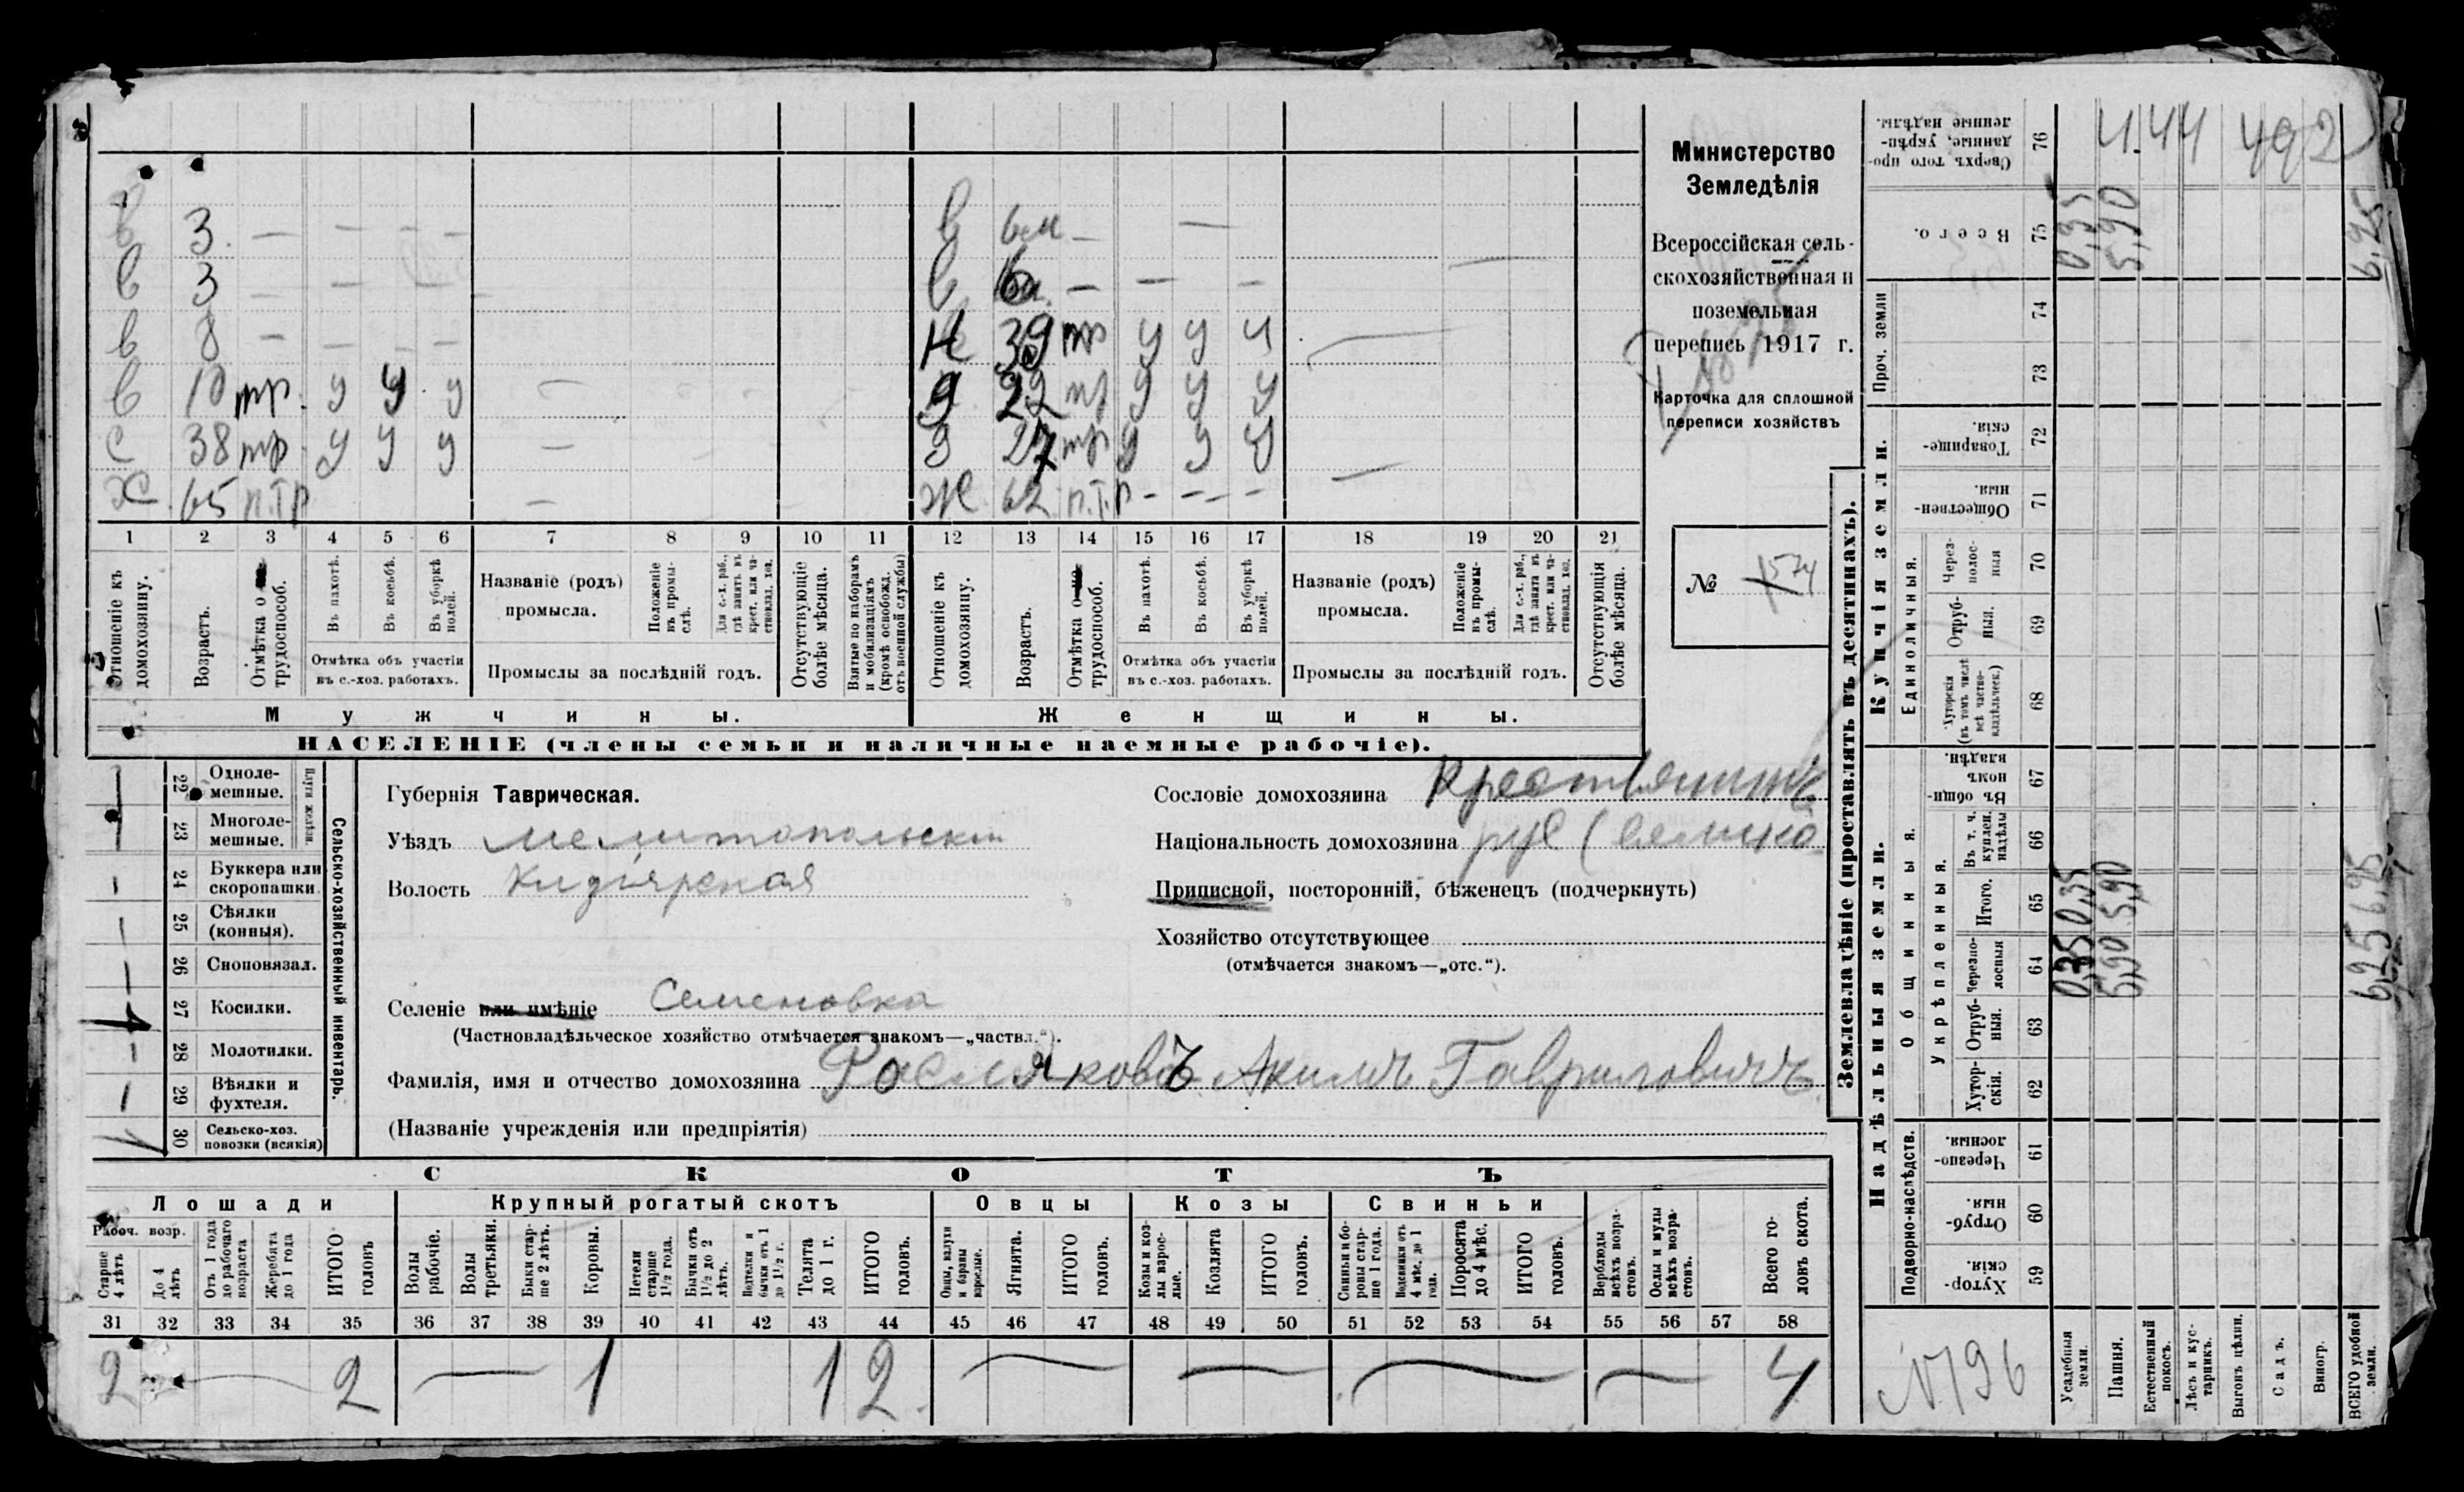 в 3. — — — —
в 3 — — — —
в 8 — — — —
в 10 тр. у у у —
с 38 тр. у у у —
Х 65 п.т.р —
в 6 м — —
в — — —
39 тр у у у
22 тр у у у
27 тр у у у
Ж 62 п.т.р — — — —
1 2 3 4 5 6 7 8 9 10 11 12 13 14 15 16 17 18 19 20 21
Отношеніе къ домохозяину.
Возрастъ.
Отмѣтка о трудоспособ.
Въ пахотѣ.
Въ косьбѣ.
Въ уборкѣ полей.
Отмѣтка объ участіи въ с.-хоз. работахъ.
Названіе (родъ) промысла.
Положеніе въ промыслѣ.
Для с.-х. раб., гдѣ занятъ въ крест. или частновлад. хоз.
Промыслы за послѣдній годъ.
Отсутствующіе болѣе мѣсяца.
Взятые по наборамъ и мобилизаціямъ (кромѣ освобожд. отъ военной службы)
Отношеніе къ домохозяину.
Возрастъ.
Отмѣтка о трудоспособ.
Въ пахотѣ.
Въ косьбѣ.
Въ уборкѣ полей.
Отмѣтка объ участіи въ с.-хоз. работахъ.
Названіе (родъ) промысла.
Положеніе въ промыслѣ.
Для с.-х. раб., гдѣ занятъ въ крест. или частновлад. хоз.
Промыслы за послѣдній годъ.
Отсутствующія болѣе мѣсяца.
Мужчины.
Женщины.
НАСЕЛЕНІЕ (члены семьи и наличные наемные рабочіе).
Министерство
Земледѣлія
Всероссійская сель-
скохозяйственная и
поземельная
перепись 1917 г.
Карточка для сплошной
переписи хозяйствъ
№ 1574
Плуги желѣзн.
22 Одноле-мешные.
23 Многоле-мешные.
24 Буккера или скоропашки.
25 Сѣялки (конныя).
26 Сноповязал.
27 Косилки.
28 Молотилки.
29 Вѣялки и фухтеля.
30 Сельско-хоз. повозки (всякія)
Сельско-хозяйственный инвентарь.
Губернія Таврическая.
Уѣздъ Мелитопольскій
Волость Кизіярская
Сословіе домохозяина Крестьянинъ
Національность домохозяина рус (велико
Приписной, посторонній, бѣженецъ (подчеркнуть)
Хозяйство отсутствующее
(отмѣчается знакомъ—„отс.“).
Селеніе или имѣніе Семеновка
(Частновладѣльческое хозяйство отмѣчается знакомъ—„частвл.“).
Фамилія, имя и отчество домохозяина Росляковъ Акимъ Гавриловичъ
(Названіе учрежденія или предпріятія)
СКОТЪ
Лошади
Крупный рогатый скотъ
Овцы
Козы
Свиньи
Рабоч. возр.
Старше 4 лѣтъ
До 4 лѣтъ
Отъ 1 года до рабочаго возраста
Жеребята до 1 года
ИТОГО головъ
Волы рабочіе.
Волы третьяки.
Быки старше 2 лѣтъ.
Коровы.
Нетели старше 1½ года.
Бычки отъ 1½ до 2 лѣтъ.
Подтелки и бычки отъ 1 до 1½ г.
Телята до 1 г.
ИТОГО головъ.
Овцы, валухи и бараны взрослые.
Ягнята.
ИТОГО головъ.
Козы и козлы взрослые.
Козлята
ИТОГО головъ.
Свиньи и боровы старше 1 года.
Подсвинки отъ 4 мѣс. до 1 года.
Поросята до 4 мѣс.
ИТОГО головъ.
Верблюды всѣхъ возрастовъ.
Ослы и мулы всѣхъ возрастовъ.
Всего головъ скота.
31 32 33 34 35 36 37 38 39 40 41 42 43 44 45 46 47 48 49 50 51 52 53 54 55 56 57 58
2 — 2 — 1 1 2 — — — — 4
Землевладѣніе (проставлять въ десятинахъ).
Надѣльныя земли.
Купчія земли.
Проч. земли
Подворно-наслѣдств.
Общинныя.
Укрѣпленныя.
Единоличныя.
59 Хутор-скія.
60 Отруб-ныя.
61 Черезпо-лосныя.
62 Хутор-скія.
63 Отруб-ныя.
64 Черезпо-лосныя
65 Итого.
66 Въ т. ч. куплен. надѣлы
67 Въ общин-номъ владѣн.
68 Хуторскія (въ томъ числѣ всѣ частно-владѣльческ.)
69 Отруб-ныя.
70 Через-полос-ныя
71 Обществен-ныя.
72 Товарище-скія.
73
74
75 Всего.
76 Сверхъ того про-данные, укрѣп-ленные надѣлы.
N 196
Усадебныя земли. 0,35 0,35 0,35
Пашня. 5,90 5,90 5,90
Естественный покосъ.
Лѣсъ и кус-тарникъ.
Выгонъ цѣлин.
Садъ.
Виногр.
ВСЕГО удобной земли. 6,25 6,25 6,25
4.44 492